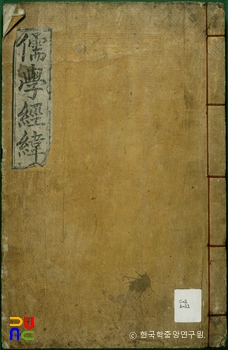 儒學經緯
ⓒ 한국학중앙연구원